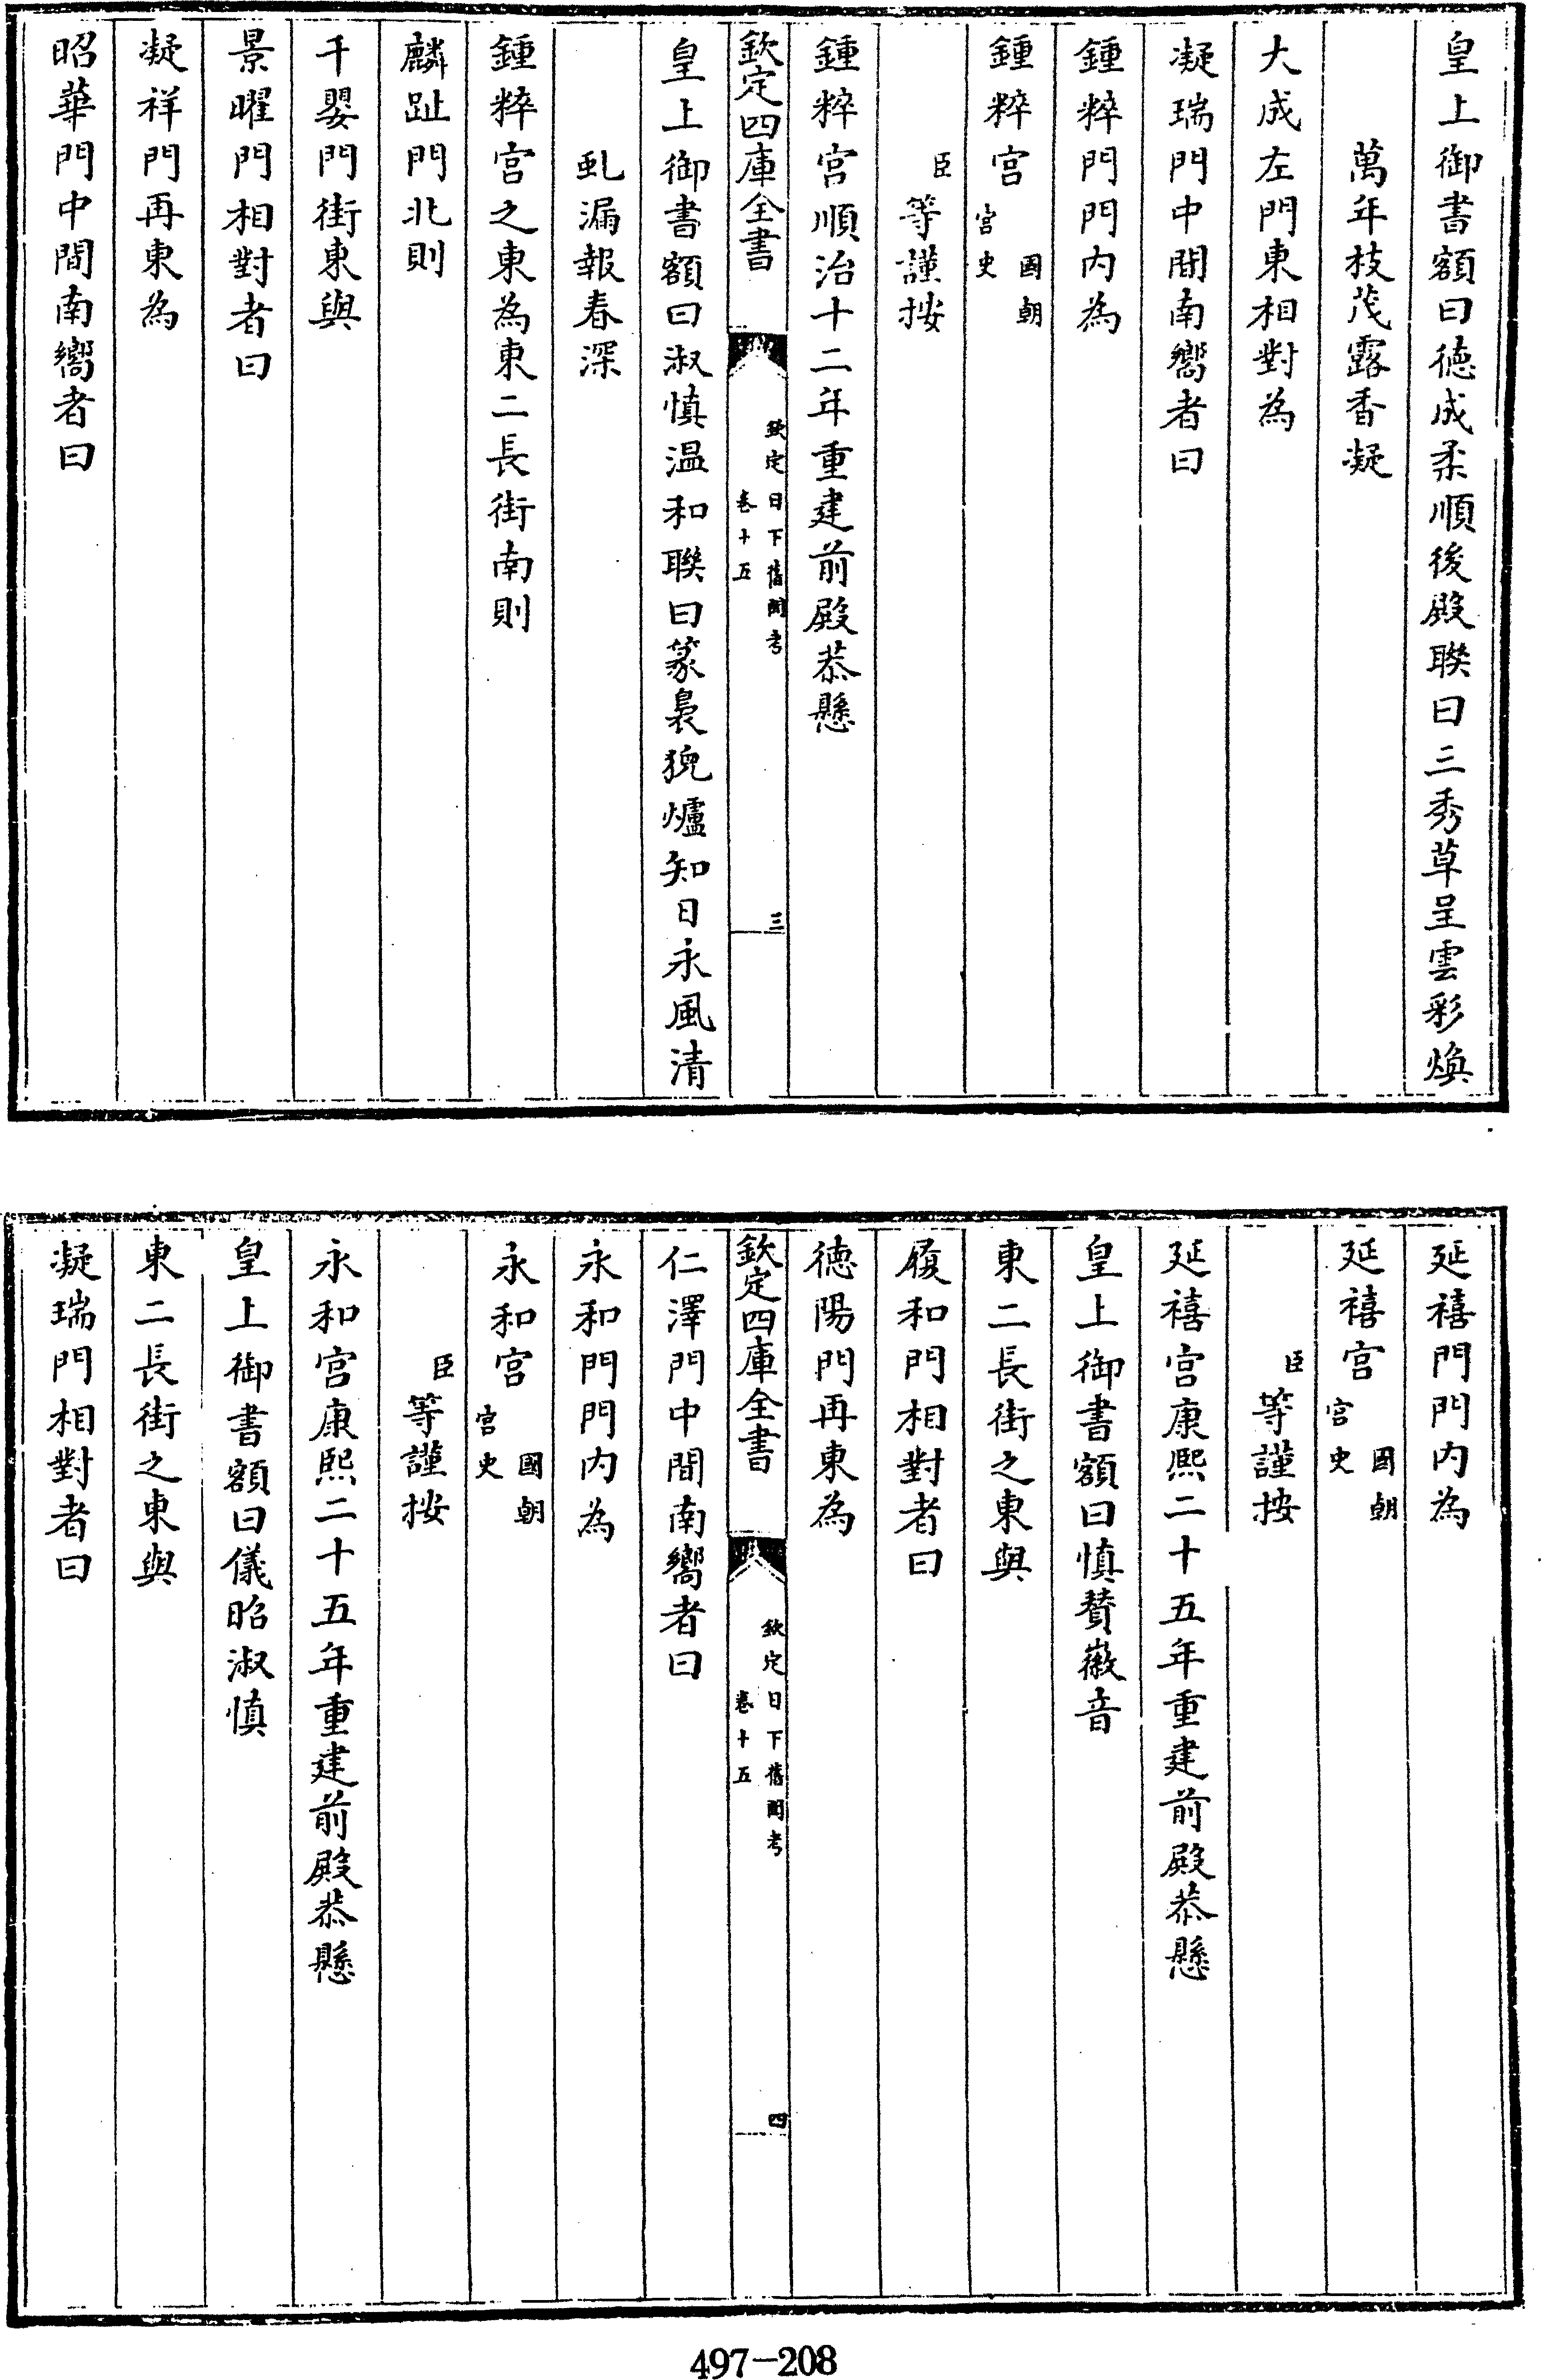 皇上御書額曰徳成柔順後殿聯曰三秀草呈雲彩煥
萬年枝茂露香凝
大成左門東相對為
凝瑞門中間南嚮者曰
鍾粹門門内為
鍾粹宫國朝宫史
臣等謹按
鍾粹宫順治十二年重建前殿恭懸
欽定四庫全書 欽定日下舊聞考卷十五 三
皇上御書額曰淑慎温和聯曰篆裊猊爐知日永風清
虬漏報春深
鍾粹宫之東為東二長街南則
麟趾門北則
千嬰門街東與
景曜門相對者曰
凝祥門再東為
昭華門中間南嚮者曰
延禧門門内為
延禧宫國朝宫史
臣等謹按
延禧宫康熙二十五年重建前殿恭懸
皇上御書額曰慎賛徽音
東二長街之東與
履和門相對者曰
徳陽門再東為
欽定四庫全書 欽定日下舊聞考卷十五 四
仁澤門中間南嚮者曰
永和門門内為
永和宫國朝宫史
臣等謹按
永和宫康熙二十五年重建前殿恭懸
皇上御書額曰儀昭淑慎
東二長街之東與
凝瑞門相對者曰
497-208